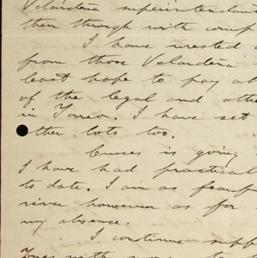 Valardena superintendent
then through with comp
I have invested
from those Valardena
least hope to pay al
of the legal and othe
in Torreon. I have set
other lots too.
is giving
I have had practical
to date. I am as
river however as for
my absence.
I continue supp
with